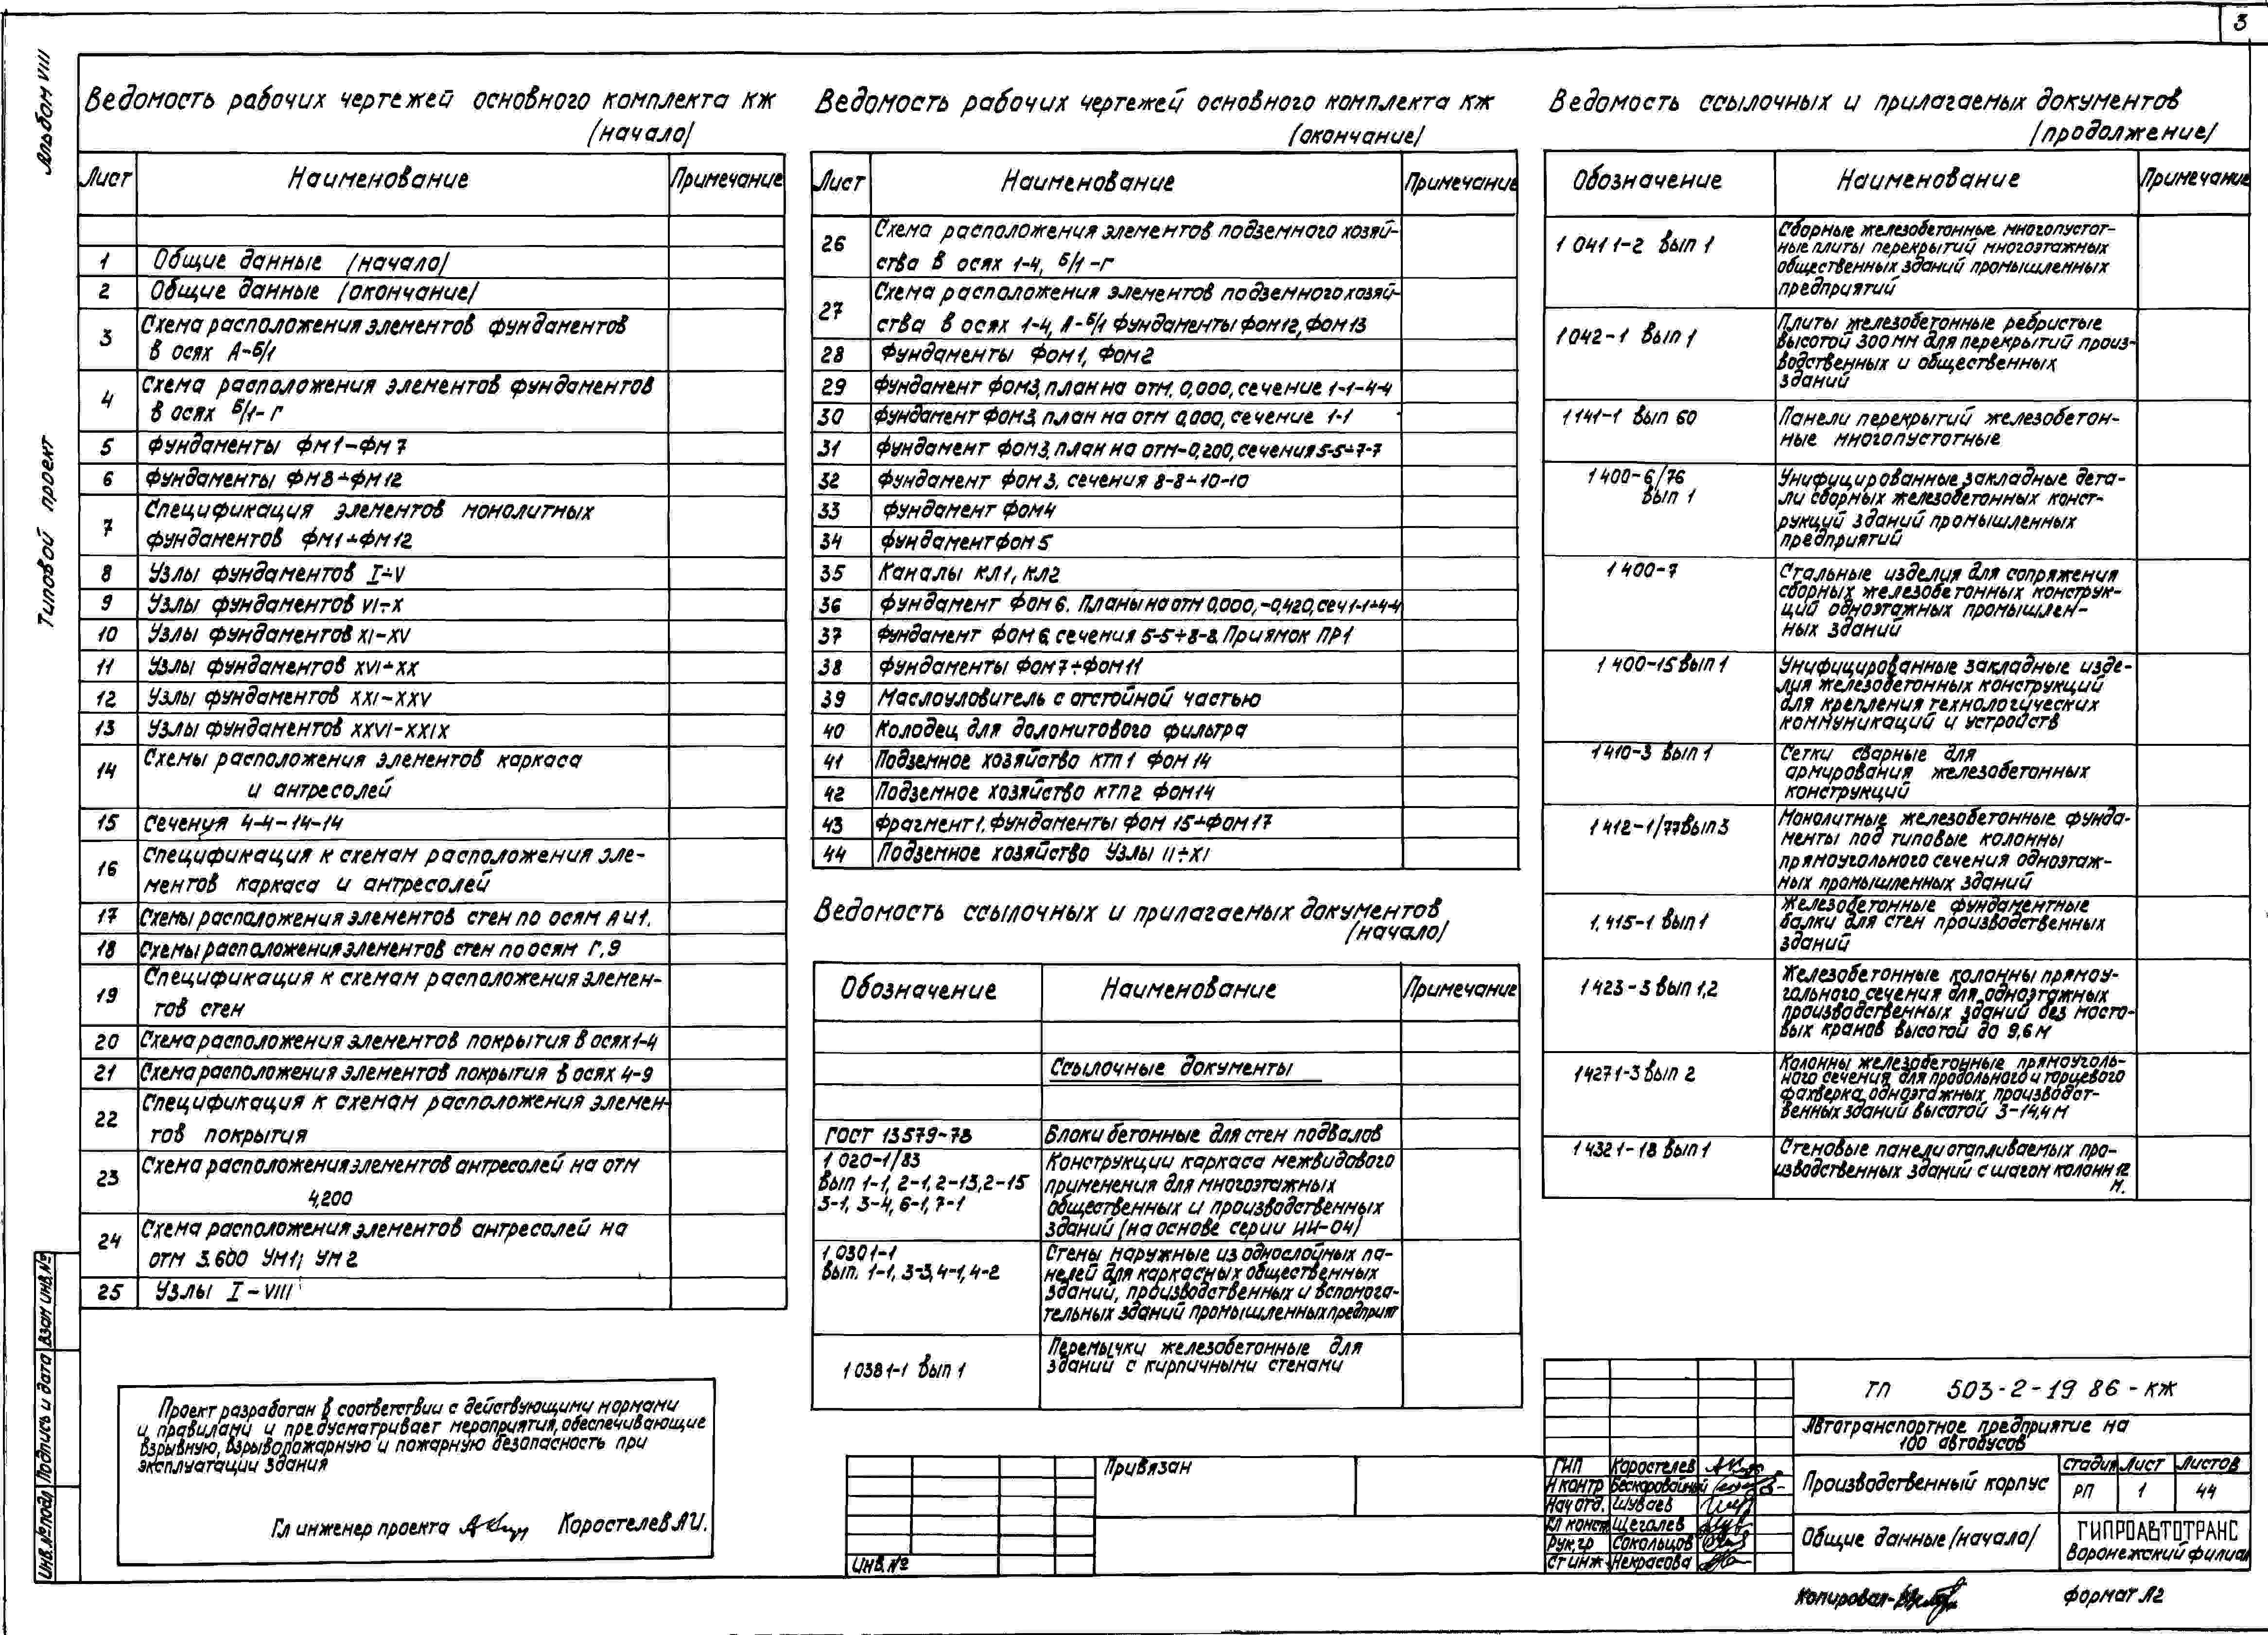 3
Альбом VIII
Типовой проект
Ведомость рабочих чертежей основного комплекта КЖ
/начало/
Лист Наименование Примечание
1 Общие данные /начало/
2 Общие данные /окончание/
3 Схема расположения элементов фундаментов
в осях А-Б/1
4 Схема расположения элементов фундаментов
в осях Б/1-Г
5 Фундаменты ФМ1-ФМ7
6 Фундаменты ФМ8÷ФМ12
7 Спецификация элементов монолитных
фундаментов ФМ1÷ФМ12
8 Узлы фундаментов I÷V
9 Узлы фундаментов VI÷X
10 Узлы фундаментов XI-XV
11 Узлы фундаментов XVI÷XX
12 Узлы фундаментов XXI-XXV
13 Узлы фундаментов XXVI-XXIX
14 Схемы расположения элементов каркаса
и антресолей
15 Сечения 4-4-14-14
16 Спецификация к схемам расположения эле-
ментов каркаса и антресолей
17 Схемы расположения элементов стен по осям А и 1.
18 Схемы расположения элементов стен по осям Г, 9
19 Спецификация к схемам расположения элемен-
тов стен
20 Схема расположения элементов покрытия в осях 1-4
21 Схема расположения элементов покрытия в осях 4-9
22 Спецификация к схемам расположения элемен-
тов покрытия
23 Схема расположения элементов антресолей на отм
4,200
24 Схема расположения элементов антресолей на
отм 3.600 УМ1; УМ2
25 Узлы I-VIII
Проект разработан в соответствии с действующими нормами
и правилами и предусматривает мероприятия, обеспечивающие
взрывную, взрывопожарную и пожарную безопасность при
эксплуатации здания
Гл инженер проекта Коростелев А И.
Ведомость рабочих чертежей основного комплекта КЖ
/окончание/
Лист Наименование Примечание
26 Схема расположения элементов подземного хозяй-
ства в осях 1-4, Б/1-Г
27 Схема расположения элементов подземного хозяй-
ства в осях 1-4, А-Б/1 Фундаменты ФОМ12, ФОМ13
28 Фундаменты ФОМ1, ФОМ2
29 Фундамент ФОМ3, план на отм. 0,000, сечение 1-1-4-4
30 Фундамент ФОМ3, план на отм 0,000, сечение 1-1
31 Фундамент ФОМ3, план на отм-0,200, сечения 5-5÷7-7
32 Фундамент ФОМ3. сечения 8-8÷10-10
33 Фундамент ФОМ4
34 Фундамент ФОМ5
35 Каналы КЛ1, КЛ2
36 Фундамент ФОМ6. Планы на отм 0,000, -0,420, сеч 1-1÷4-4
37 Фундамент ФОМ6, сечения 5-5÷8-8. Приямок ПР1
38 Фундаменты ФОМ7÷ФОМ11
39 Маслоуловитель с отстойной частью
40 Колодец для доломитового фильтра
41 Подземное хозяйство КТП1 ФОМ14
42 Подземное хозяйство КТП2 ФОМ14
43 Фрагмент 1. Фундаменты ФОМ 15÷ФОМ17
44 Подземное хозяйство Узлы II÷XI
Ведомость ссылочных и прилагаемых документов
/начало/
Обозначение Наименование Примечание
Ссылочные документы
ГОСТ 13579-78 Блоки бетонные для стен подвалов
1 020-1/83 Конструкции каркаса межвидового
Вып 1-1, 2-1, 2-13, 2-15 применения для многоэтажных
3-1, 3-4, 6-1, 7-1 общественных и производственных
зданий /на основе серии ИИ-04/
1 030 1-1 Стены наружные из однослойных па-
Вып. 1-1, 3-3, 4-1, 4-2 нелей для каркасных общественных
зданий, производственных и вспомога-
тельных зданий промышленных предприят
1 038 1-1 Вып 1 Перемычки железобетонные для
зданий с кирпичными стенами
Ведомость ссылочных и прилагаемых документов
/продолжение/
Обозначение Наименование Примечание
1 041 1-2 Вып 1 Сборные железобетонные многопустот-
ные плиты перекрытий многоэтажных
общественных зданий промышленных
предприятий
1 042-1 Вып 1 Плиты железобетонные ребристые
высотой 300 мм для перекрытий произ-
водственных и общественных
зданий
1 141-1 Вып 60 Панели перекрытий железобетон-
ные многопустотные
1 400-6/76 Унифицированные закладные дета-
Вып 1 ли сборных железобетонных конст-
рукций зданий промышленных
предприятий
1 400-7 Стальные изделия для сопряжения
сборных железобетонных конструк-
ций одноэтажных промышлен-
ных зданий
1 400-15 Вып 1 Унифицированные закладные изде-
лия железобетонных конструкций
для крепления технологических
коммуникаций и устройств
1 410-3 Вып 1 Сетки сварные для
армирования железобетонных
конструкций
1 412-1/77 Вып 3 Монолитные железобетонные фунда-
менты под типовые колонны
прямоугольного сечения одноэтаж-
ных промышленных зданий
1.415-1 Вып 1 Железобетонные фундаментные
балки для стен производственных
зданий
1 423-3 Вып 1,2 Железобетонные колонны прямоу-
гольного сечения для одноэтажных
производственных зданий без мосто-
вых кранов высотой до 9,6 м
1 427 1-3 Вып 2 Колонны железобетонные прямоуголь-
ного сечения для продольного и торцевого
фахверка одноэтажных производст-
венных зданий высотой 3-14,4 м
1 432 1-18 Вып 1 Стеновые панели отапливаемых про-
изводственных зданий с шагом колонн 12
м.
Инв. № подл Подпись и дата Взам инв. №
Привязан
Инв. №
ТП 503-2-19 86-КЖ
Автотранспортное предприятие на
100 автобусов
ГИП Коростелев
Н контр Бескоровайный
Нач отд. Шуваев
Гл конст Щеголев
Рук. гр Сокольцов
Ст инж Некрасова
Производственный корпус
Стадия Лист Листов
РП 1 44
Общие данные /начало/
ГИПРОАВТОТРАНС
Воронежский филиал
Копировал-
Формат А2